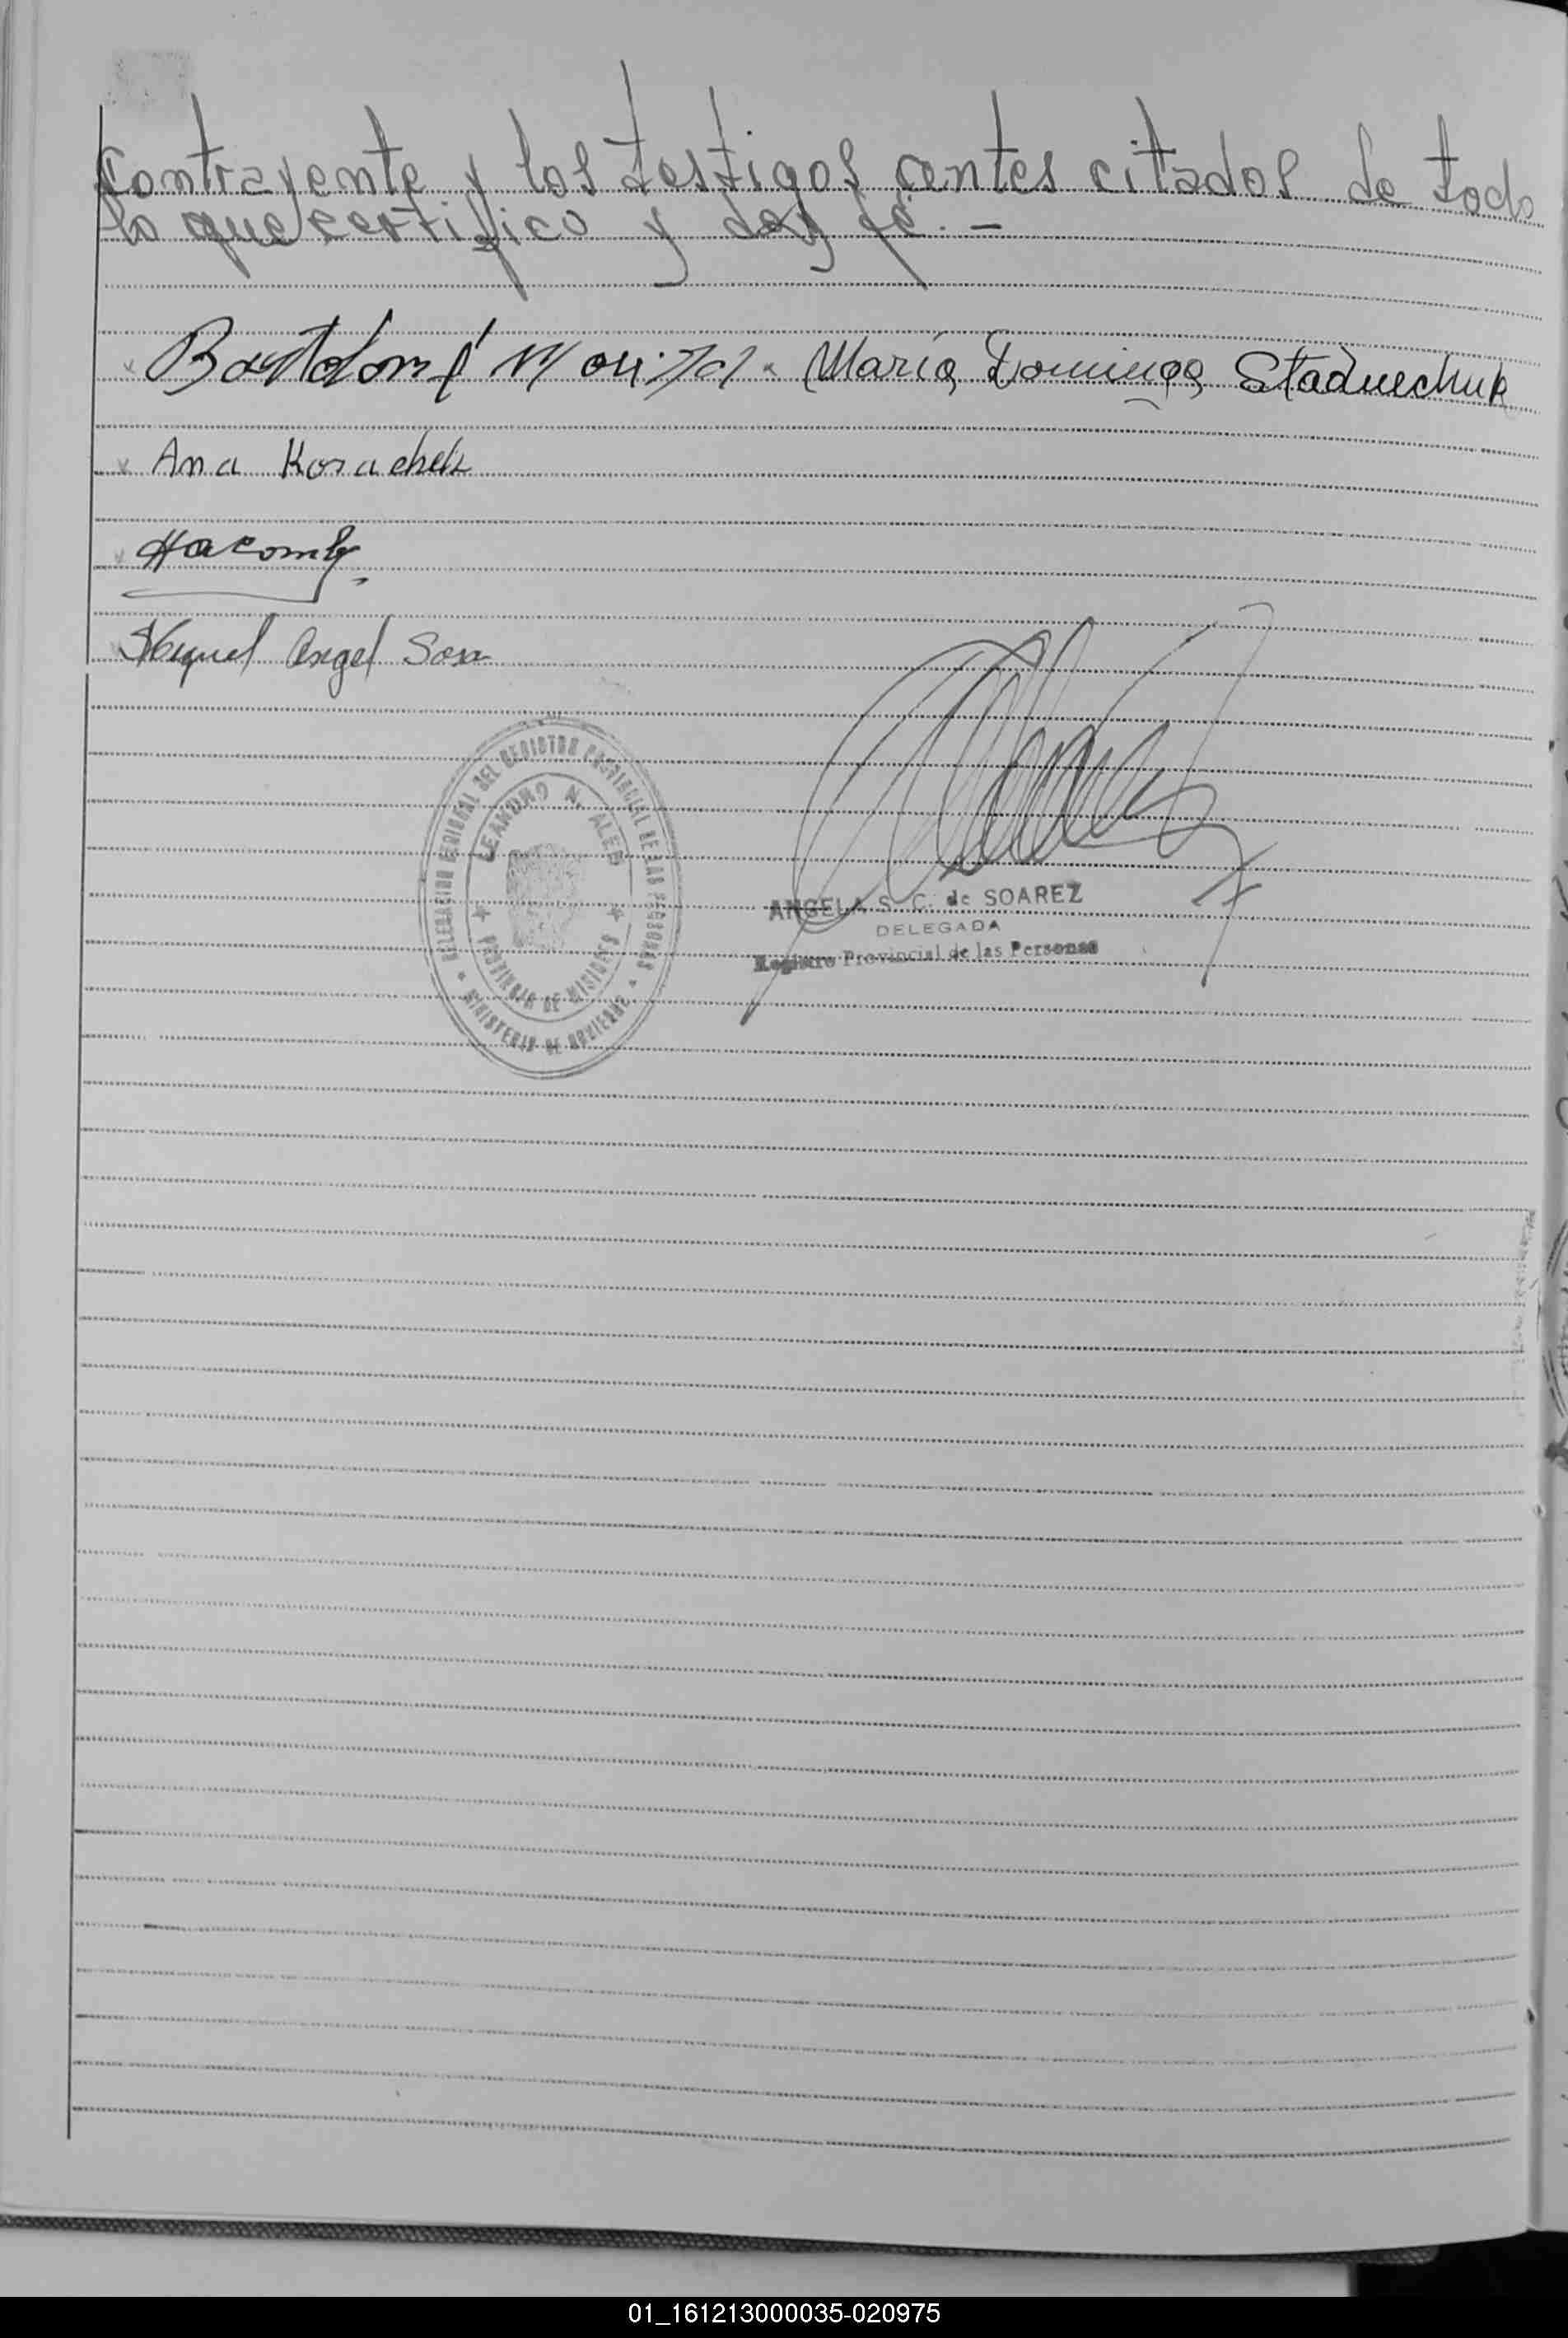 contrayente y los testigos antes citados de todo
lo que certifico y doy fé. —
Bartolomé María Dominga Staduechuk
Ana Korachek
Miguel Angel
DELEGACION REGIONAL DEL REGISTRO PROVINCIAL DE LAS PERSONAS
LEANDRO N. ALEM
PROVINCIA DE MISIONES
MINISTERIO DE GOBIERNO
ANGELA S. C. de SOAREZ
DELEGADA
Registro Provincial de las Personas
01_161213000035-020975